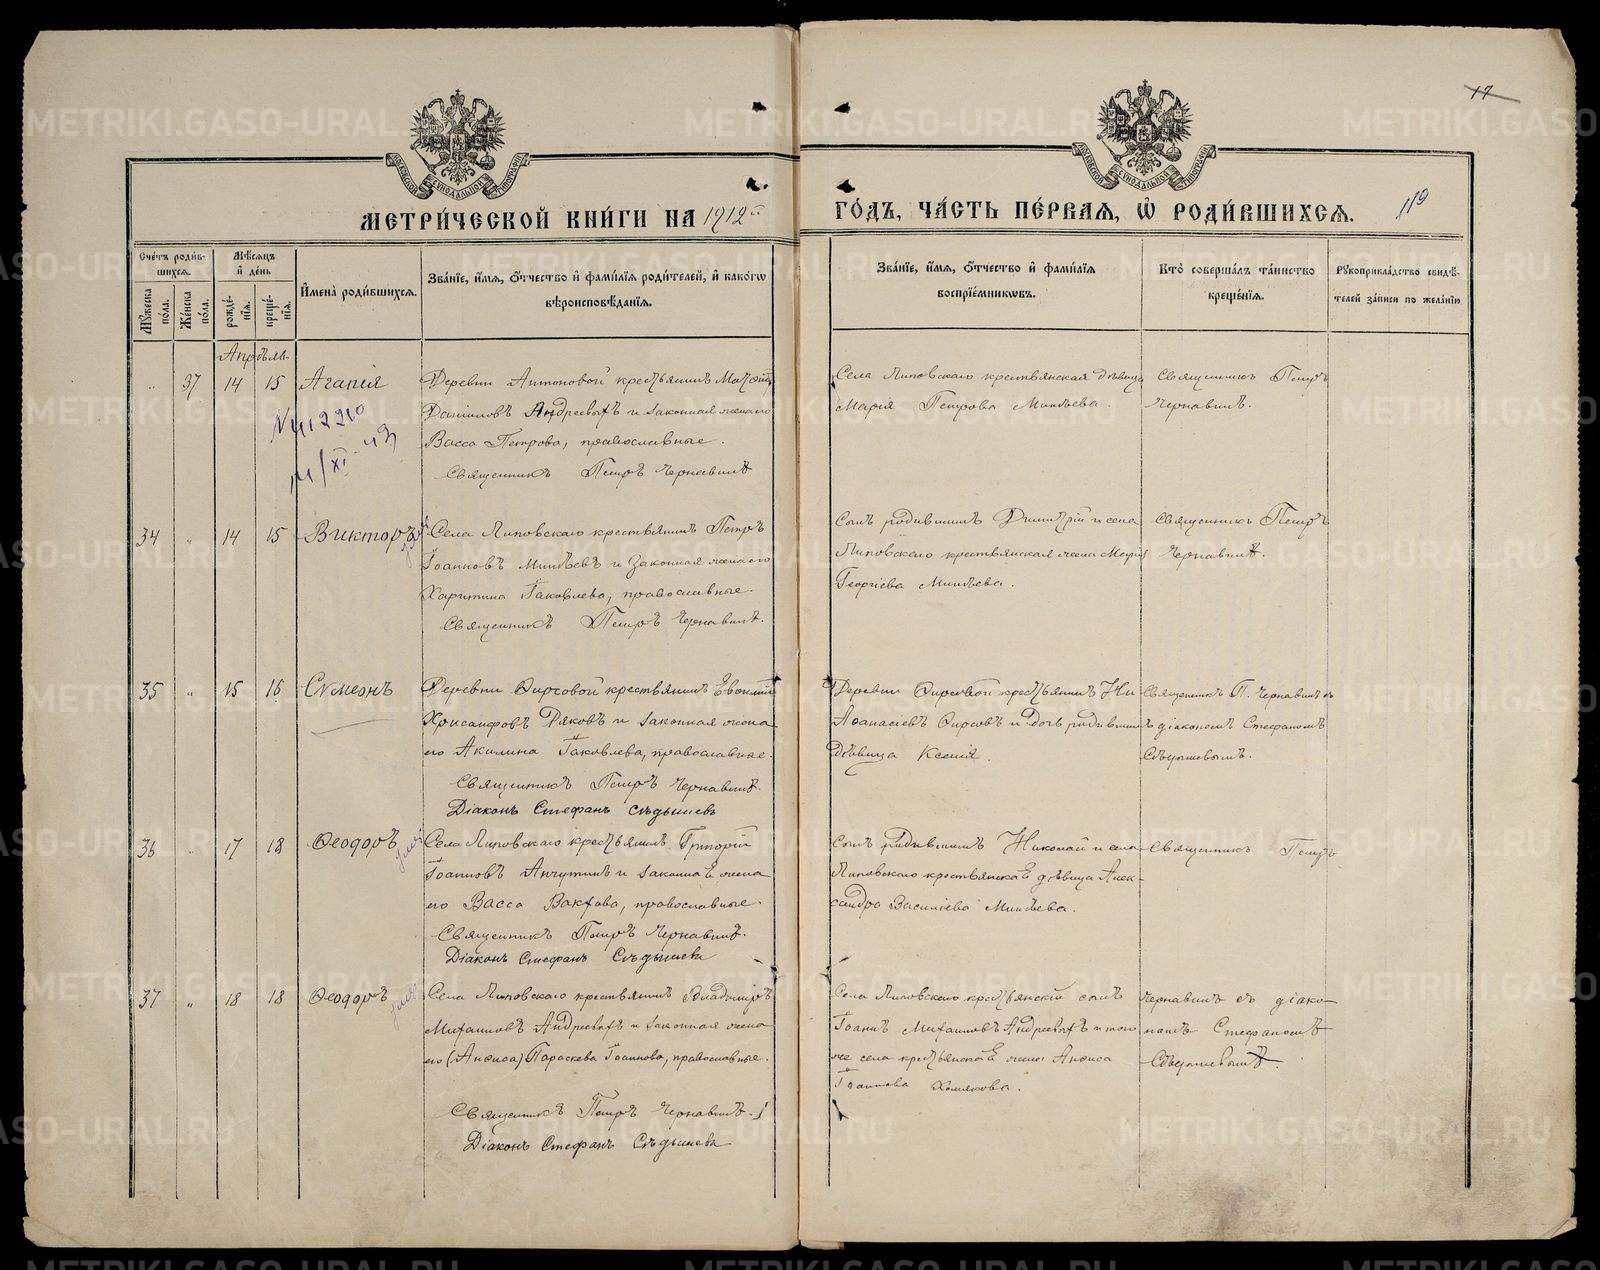 17
119
МЕТРИ́ЧЕСКОЙ КНИ́ГИ НА 1912й ГО́ДЪ, ЧА́СТЬ ПЕ́РВАЯ, Ѡ РОДИ́ВШИХСЯ.
Сче́тъ роди́вшихся.
Му́жеска по́ла.
Же́нска по́ла.
Мѣ́сяцъ и день
рожде́нїя.
креще́нїя.
И҆мена̀ роди́вшихся.
Зва́нїе, и҆́мя, ѻ҆́тчество и҆ фами́лїя роди́телей, и҆ како́гѡ
вѣроисповѣ́данїя.
Зва́нїе, и҆́мя, ѻ҆́тчество и҆ фами́лїя
воспрїе́мникѡвъ.
Кто̀ соверша́лъ та́инство
креще́нїя.
Рꙋкоприкла́дство свидѣ́-
телей за́писи по жела́нїю
Апрѣль.
37 14 15 Агапія
Деревни Антоновой крестьянинъ
Даніиловъ Андреевыхъ и законная жена его
Васса Петрова, православные.
Священникъ Петръ Чернавинъ
Села Липовскаго крестьянская дѣвица
Марія Петрова Минѣева.
Священникъ Петръ
Чернавинъ.
34 " 14 15 Викторъ
Села Липовскаго крестьянинъ Петръ
Іоанновъ Минѣевъ и законная жена его
Харитина Іаковлева, православные.
Священникъ Петръ Чернавинъ.
Сынъ родившихъ Димитрій и села
Липовскаго крестьянская жена Марія
Георгіева Минѣева.
Священникъ Петръ
Чернавинъ.
35 " 15 16 Сѵмеонъ
Деревни Фирсовой крестьянинъ Евѳимій
Хрисанфовъ Ряковъ и законная жена
его Акилина Іаковлева, православные.
Священникъ Петръ Чернавинъ.
Діаконъ Стефанъ Сѣдышевъ
Деревни Фирсовой крестьянинъ
Аѳанасіевъ Фирсовъ и дочь родившихъ
дѣвица Ксенія.
Священникъ П. Чернавинъ съ
діакономъ Стефаномъ
Сѣдышевымъ.
36 " 17 18 Ѳеодоръ
Села Липовскаго крестьянинъ Григорій
Іоанновъ Анчутинъ и законная жена
его Васса Вакхова, православные.
Священникъ Петръ Чернавинъ.
Діаконъ Стефанъ Сѣдышевъ
Сынъ родившихъ Николай и села
Липовскаго крестьянская дѣвица Алек-
сандра Василіева Минѣева.
Священникъ Петръ
37 " 18 18 Ѳеодоръ
Села Липовскаго крестьянинъ Владиміръ
Михаиловъ Андреевыхъ и законная жена
его (Анѳиса) Параскева Іоаннова, православные.
Священникъ Петръ Чернавинъ.
Діаконъ Стефанъ Сѣдышевъ
Села Липовскаго крестьянскій сынъ
Іоаннъ Михаиловъ Андреевыхъ и того
же села крестьянская жена Анѳиса
Іоаннова Хомякова.
Чернавинъ съ діако-
номъ Стефаномъ
Сѣдышевымъ.
METRIKI.GASO-URAL.RU